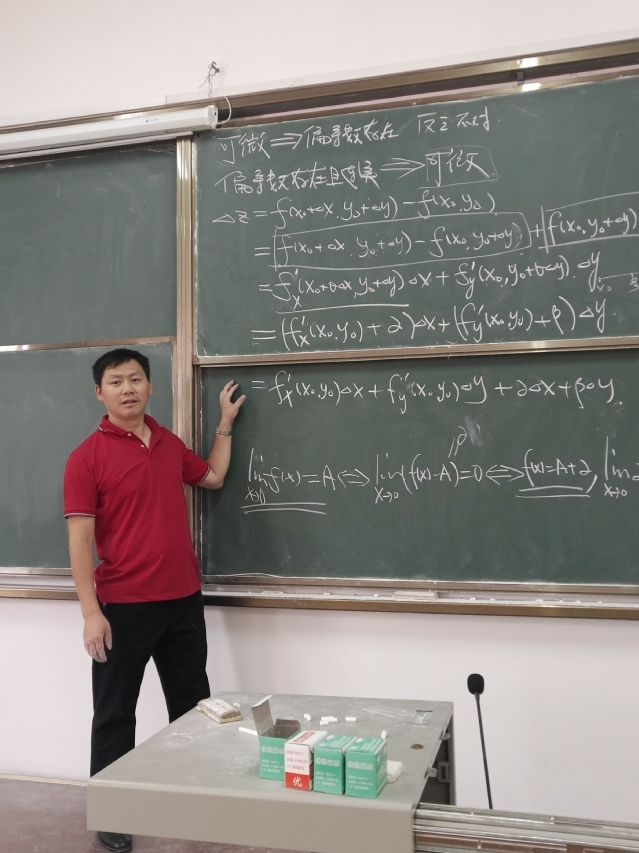 可微⇒偏导数存在 反之不对
偏导数存在且连续⇒可微
Δz=f(x₀+Δx, y₀+Δy)-f(x₀, y₀)
=f(x₀+Δx, y₀+Δy)-f(x₀, y₀+Δy)+f(x₀, y₀+Δy)
=f'ₓ(x₀+θΔx, y₀+Δy)Δx+f'y(x₀, y₀+θΔy)Δy
=(f'ₓ(x₀, y₀)+α)Δx+(f'y(x₀, y₀)+β)Δy
=f'ₓ(x₀, y₀)Δx+f'y(x₀, y₀)Δy+αΔx+βΔy
lim x→0 f(x)=A⇔lim x→0 (f(x)-A)=0⇔f(x)=A+α, lim x→0
优